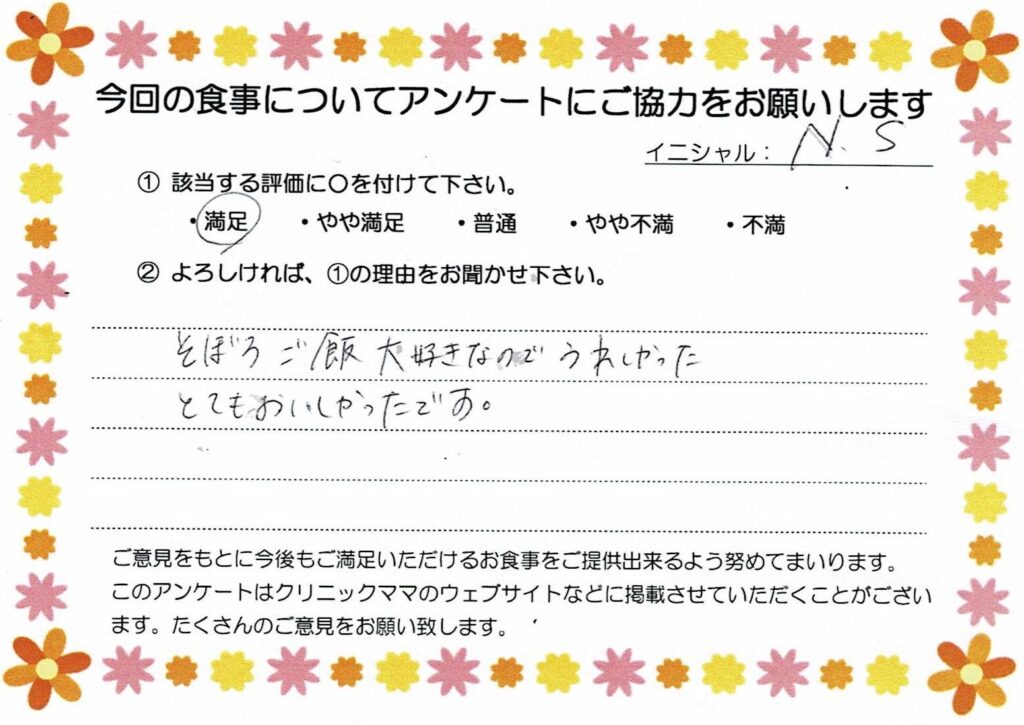 今回の食事についてアンケートにご協力をお願いします
イニシャル： N. S
① 該当する評価に〇を付けて下さい。
・満足 ・やや満足 ・普通 ・やや不満 ・不満
② よろしければ、①の理由をお聞かせ下さい。
そぼろご飯大好きなのでうれしかった
とてもおいしかったです。
ご意見をもとに今後もご満足いただけるお食事をご提供出来るよう努めてまいります。
このアンケートはクリニックママのウェブサイトなどに掲載させていただくことがござい
ます。たくさんのご意見をお願い致します。